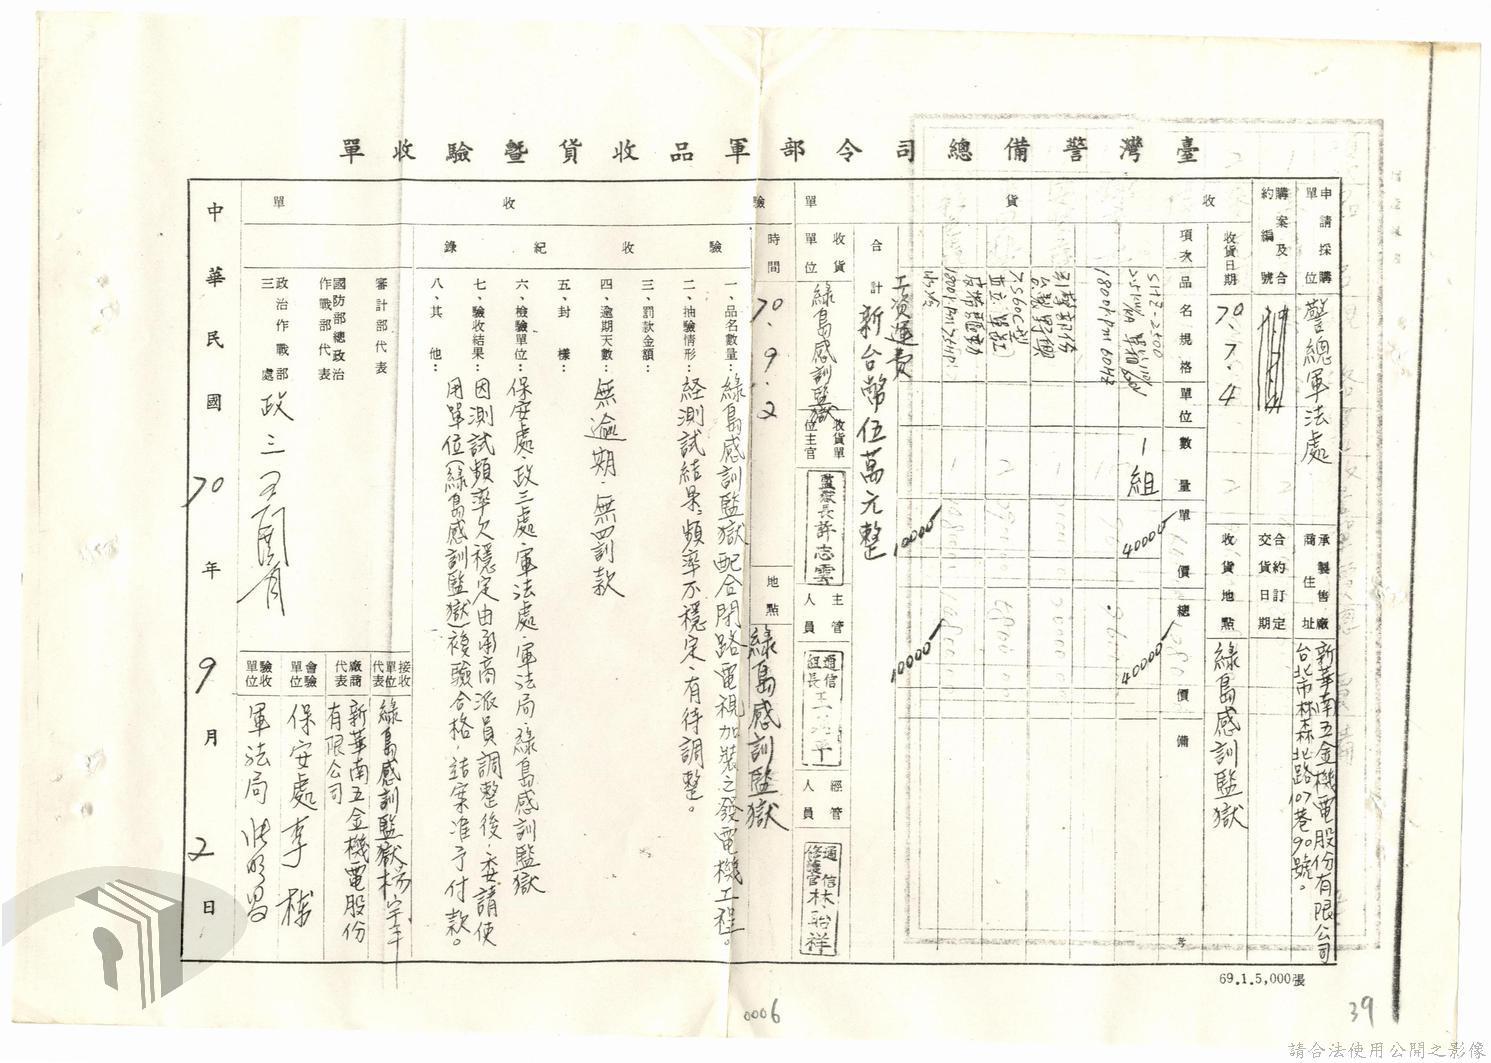 臺灣警備總司令部軍品收貨暨驗收單
收貨單
申請採購單位
警總軍法處
承製售廠商住址
新華南五金機電股份有限公司
台北市林森北路107巷90號。
購案及合約編號
合約訂定交貨日期
收貨日期
70.7.4
收貨地點
綠島感訓監獄
項次
品名規格
單位
數量
單價
總價
備考
1800rpm 60Hz
1組
40000
40000
工資運費
10000
10000
合計
新台幣伍萬元整
收貨單位
綠島感訓監獄
收貨單位主官
監獄長許志雲
主管人員
通信組長
經管人員
通信修護官林治祥
驗收單
時間
70.9.2
地點
綠島感訓監獄
驗收紀錄
一、品名數量：綠島感訓監獄配合閉路電視加裝之發電機工程。
二、抽驗情形：経測試結果，頻率不穩定，有待調整。
三、罰款金額：
四、逾期天數：無逾期，無罰款
五、封樣：
六、檢驗單位：保安處、政三處、軍法處、軍法局、綠島感訓監獄
七、驗收結果：因測試頻率欠穩定由南商派員調整後，委請使
用單位（綠島感訓監獄）複驗合格，結案准予付款。
八、其他：
審計部代表
國防部總政治作戰部代表
政治作戰部三處
政三
接收單位代表
綠島感訓監獄楊宗
廠商代表
新華南五金機電股份
有限公司
會驗單位
保安處李栋
驗收單位
軍法局張明昌
中華民國70年9月2日
69.1.5,000張
0006
39
請合法使用公開之影像